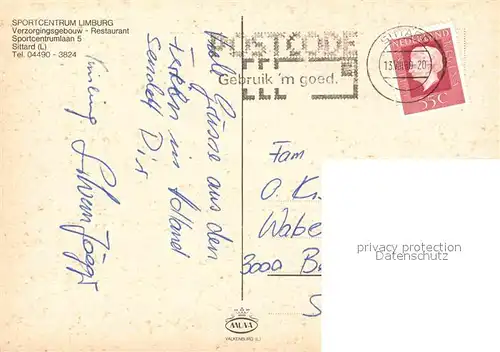 SPORTCENTRUM LIMBURG
Verzorgingsgebouw - Restaurant
Sportcentrumlaan 5
Sittard (L)
Tel. 04490 - 3824
POSTCODE
Gebruik 'm goed.
NEDERLAND
55c
Viele Grüsse aus den
Ferien in Holland
sendet Dir
Silvan Jäggi
Fam
O. K
Wabe
3000 B
S
privacy protection
MUVA
VALKENBURG (L.)